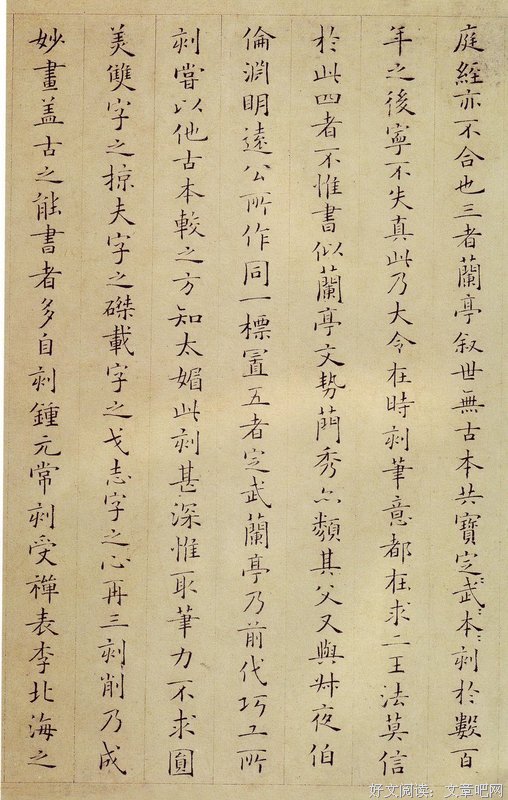 庭經亦不合也三者蘭亭叙世無古本共寶定武〻本〻刻於數百
年之後寧不失真此乃大令在時刻筆意都在求二王法莫信
於此四者不惟書似蘭亭文勢簡秀亦類其父又與叔夜伯
倫淵明遠公所作同一標置五者定武蘭亭乃前代巧工所
刻嘗以他古本較之方知太媚此刻甚深惟取筆力不求圓
美雙字之掠夫字之磔載字之戈志字之心再三刻削乃成
妙畫盖古之能書者多自刻鍾元常刻受禪表李北海之
好文阅读：文章吧网